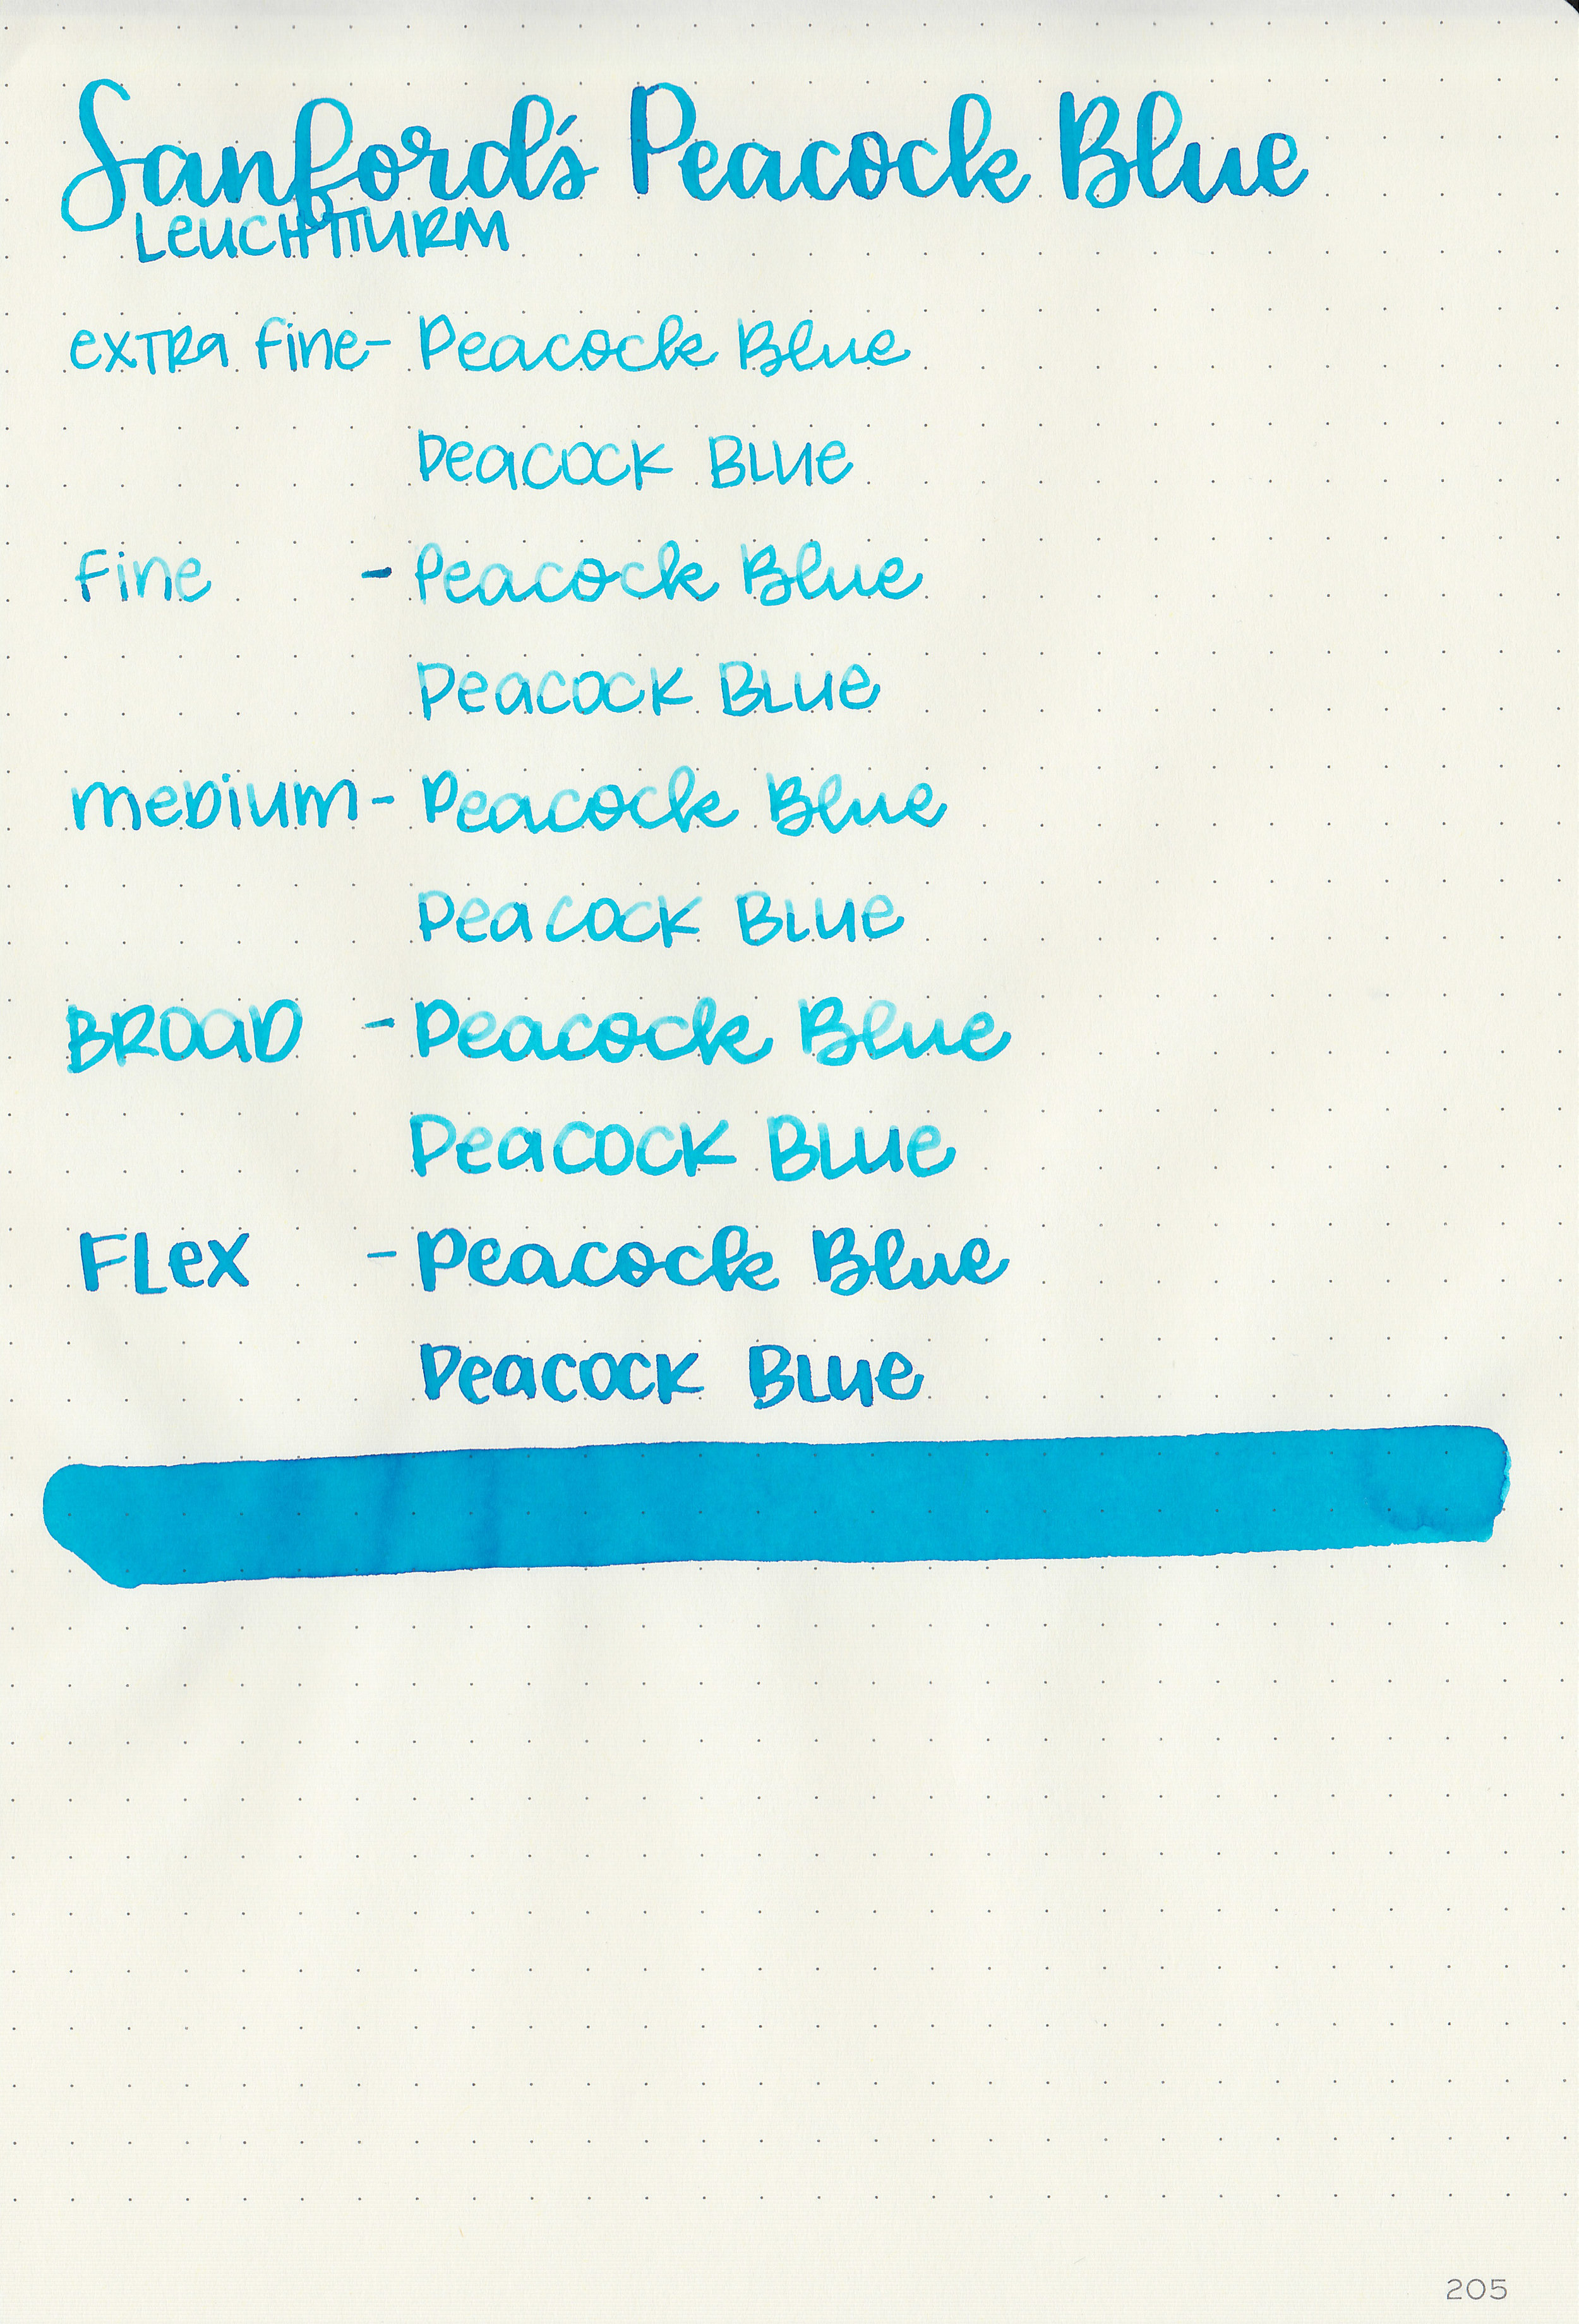 Sanford's Peacock Blue
LEUCHTTURM
exTRa fine- Peacock Blue
Peacock BLUe
Fine - Peacock Blue
Peacock BLUe
meDium- Peacock Blue
Peacock BLUe
BROaD - Peacock Blue
Peacock BLUe
FLex - Peacock Blue
Peacock BLUe
205